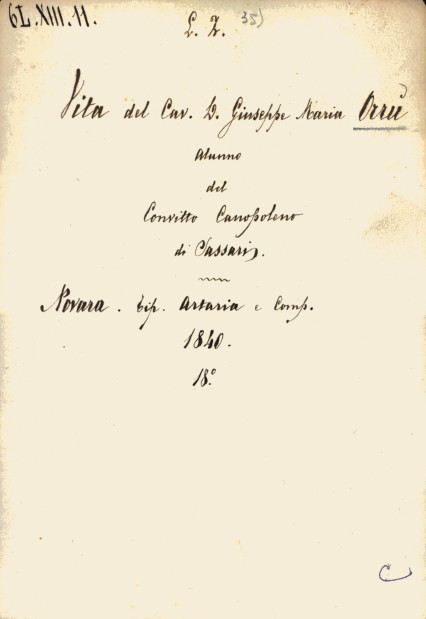 6L.XIII.11.
L. Z. 35)
Vita del Cav. D. Giuseppe Maria Orrù
Alunno
del
Convitto Canopoleno
di Sassari.
Novara. Tip. Artaria e Comp.
1840.
18.°
C